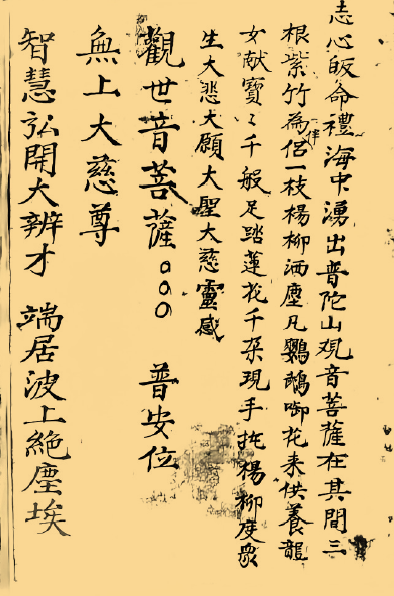 志心皈命禮海中湧出普陀山观音菩薩在其間三
根紫竹為伴侣一枝楊柳洒塵凡鸚鵡啣花来供養龍
女献寶〻千般足踏蓮花千朶現手楊柳度衆
生大悲大願大聖大慈靈感
觀世音菩薩。。。 普安位
無上大慈尊
智慧弘開大辨才 端居波上絶塵埃